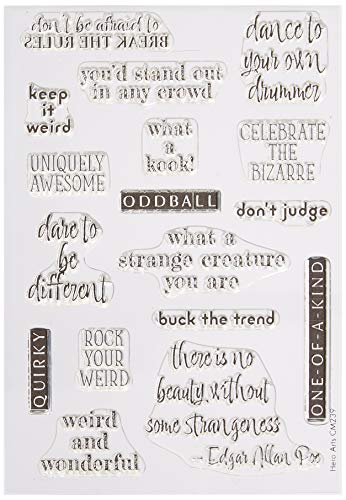 don't be afraid to
BREAK THE RULES
dance to
your own
drummer
you'd stand out
in any crowd
keep
it
weird
what
a
kook!
CELEBRATE
THE
BIZARRE
UNIQUELY
AWESOME
ODDBALL
don't judge
dare to
be
different
what a
strange creature
you are
buck the trend
ONE-OF-A-KIND
QUIRKY
ROCK
YOUR
WEIRD
there is no
beauty without
some strangeness
- Edgar Allan Poe
weird
and
wonderful
Hero Arts CM239